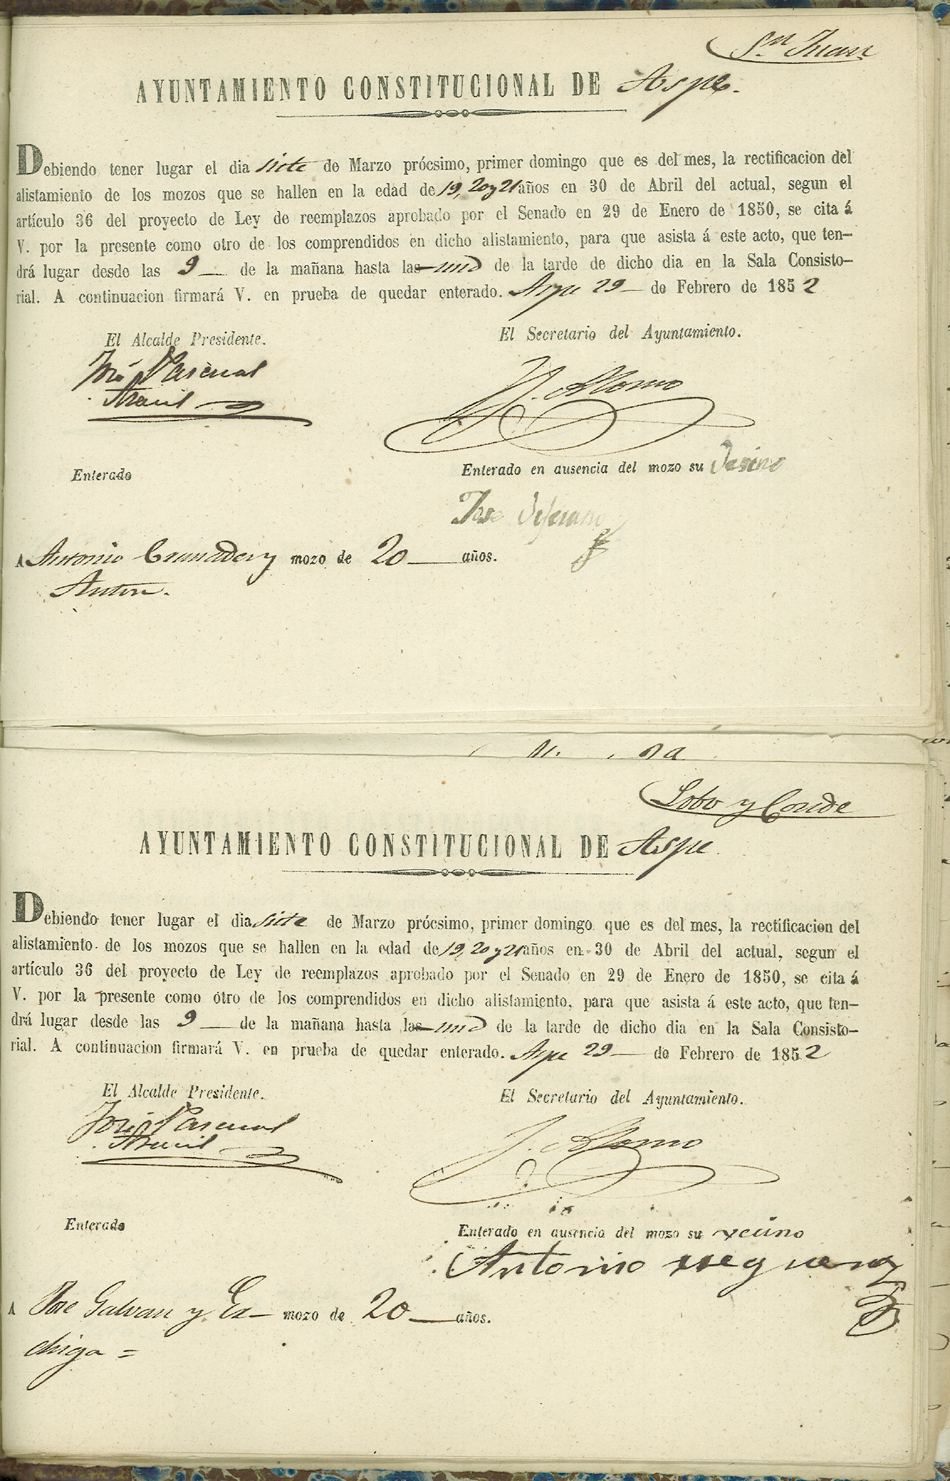 Sn. Juan
AYUNTAMIENTO CONSTITUCIONAL DE Aspe.
Debiendo tener lugar el dia siete de Marzo prócsimo, primer domingo que es del mes, la rectificacion del
alistamiento de los mozos que se hallen en la edad de 19, 20 y 21 años en 30 de Abril del actual, segun el
artículo 36 del proyecto de Ley de reemplazos aprobado por el Senado en 29 de Enero de 1850, se cita á
V. por la presente como otro de los comprendidos en dicho alistamiento, para que asista á este acto, que ten-
drá lugar desde las 9 de la mañana hasta las una de la tarde de dicho dia en la Sala Consisto-
rial. A continuacion firmará V. en prueba de quedar enterado. Aspe 29 de Febrero de 1852
El Alcalde Presidente. El Secretario del Ayuntamiento.
José Pascual J. Alonso
Enterado Enterado en ausencia del mozo su
Jose
A Antonio mozo de 20 años.
Anton.
Lobo y Conde
AYUNTAMIENTO CONSTITUCIONAL DE Aspe
Debiendo tener lugar el dia siete de Marzo prócsimo, primer domingo que es del mes, la rectificacion del
alistamiento de los mozos que se hallen en la edad de 19, 20 y 21 años en 30 de Abril del actual, segun el
artículo 36 del proyecto de Ley de reemplazos aprobado por el Senado en 29 de Enero de 1850, se cita á
V. por la presente como otro de los comprendidos en dicho alistamiento, para que asista á este acto, que ten-
drá lugar desde las 9 de la mañana hasta las una de la tarde de dicho dia en la Sala Consisto-
rial. A continuacion firmará V. en prueba de quedar enterado. Aspe 29 de Febrero de 1852
El Alcalde Presidente. El Secretario del Ayuntamiento.
José Pascual J. Alonso
Enterado Enterado en ausencia del mozo su vecino
Antonio
A Jose Galvan y mozo de 20 años.